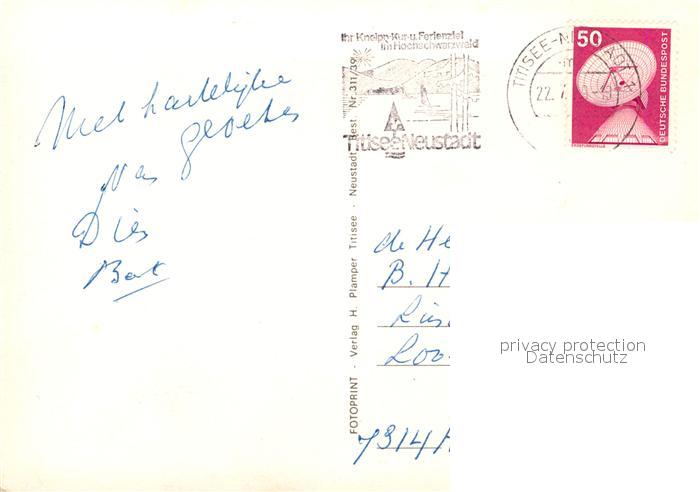 Met hartelijke
groeten
van
Dies
Bert
Ihr Kneipp-Kur-u.Ferienziel
im Hochschwarzwald
Titisee-Neustadt
TITISEE-N
22.7
50
DEUTSCHE BUNDESPOST
FOTOPRINT - Verlag H. Plamper Titisee - Neustadt Best. Nr. 311/39
de He
B. H
Loo
7314
privacy protection
Datenschutz